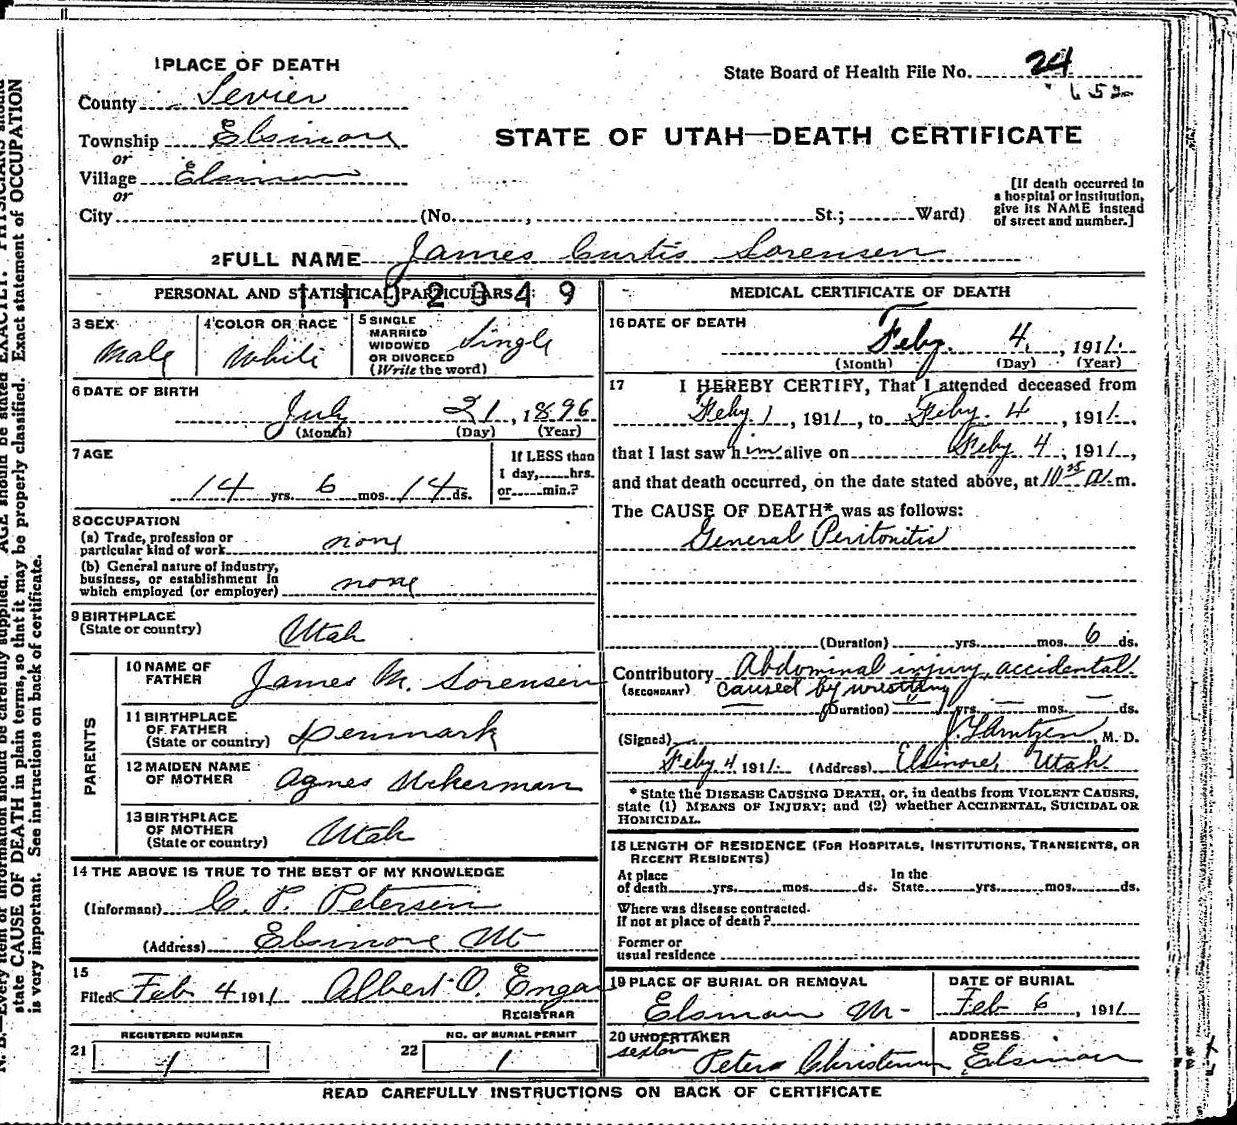 1 PLACE OF DEATH
County Sevier
Township Elsinore
or
Village Elsinore
or
City (No. , St.; Ward)
State Board of Health File No. 24
STATE OF UTAH—DEATH CERTIFICATE
[If death occurred in
a hospital or institution,
give its NAME instead
of street and number.]
2 FULL NAME James Curtis Sorensen
PERSONAL AND STATISTICAL PARTICULARS
3 SEX
Male
4 COLOR OR RACE
White
5 SINGLE
MARRIED
WIDOWED
OR DIVORCED
(Write the word)
Single
6 DATE OF BIRTH
July 21, 1896
(Month) (Day) (Year)
7 AGE
14 yrs. 6 mos. 14 ds.
If LESS than
1 day, hrs.
or min.?
8 OCCUPATION
(a) Trade, profession or
particular kind of work none
(b) General nature of industry,
business, or establishment in
which employed (or employer) none
9 BIRTHPLACE
(State or country) Utah
PARENTS
10 NAME OF
FATHER James M. Sorensen
11 BIRTHPLACE
OF FATHER
(State or country) Denmark
12 MAIDEN NAME
OF MOTHER Agnes Ukerman
13 BIRTHPLACE
OF MOTHER
(State or country) Utah
14 THE ABOVE IS TRUE TO THE BEST OF MY KNOWLEDGE
(Informant) C. P. Petersen
(Address) Elsinore Ut
15
Filed Feb 4 1911 Albert O. Engar
REGISTRAR
REGISTERED NUMBER
21 1
NO. OF BURIAL PERMIT
22 1
MEDICAL CERTIFICATE OF DEATH
16 DATE OF DEATH
Feby. 4, 1911.
(Month) (Day) (Year)
17 I HEREBY CERTIFY, That I attended deceased from
Feby 1, 1911, to Feby. 4, 1911.
that I last saw him alive on Feby 4, 1911,
and that death occurred, on the date stated above, at 10 A.m.
The CAUSE OF DEATH* was as follows:
General Peritonitis
(Duration) yrs. mos. 6 ds.
Contributory Abdominal injury, accidental.
(SECONDARY) caused by wrestling
(Duration) — yrs. — mos. — ds.
(Signed) J. Lantzen, M. D.
Feby 4 1911. (Address) Elsinore, Utah
* State the DISEASE CAUSING DEATH, or, in deaths from VIOLENT CAUSES,
state (1) MEANS OF INJURY; and (2) whether ACCIDENTAL, SUICIDAL OR
HOMICIDAL.
18 LENGTH OF RESIDENCE (FOR HOSPITALS, INSTITUTIONS, TRANSIENTS, OR
RECENT RESIDENTS)
At place
of death yrs. mos. ds.
In the
State yrs. mos. ds.
Where was disease contracted.
If not at place of death?
Former or
usual residence
19 PLACE OF BURIAL OR REMOVAL
Elsinore Ut-
DATE OF BURIAL
Feb 6, 1911
20 UNDERTAKER
sexton Peter Christensen
ADDRESS
Elsinore
READ CAREFULLY INSTRUCTIONS ON BACK OF CERTIFICATE
state CAUSE OF DEATH in plain terms, so that it may be properly classified. Exact statement of OCCUPATION
is very important. See instructions on back of certificate.